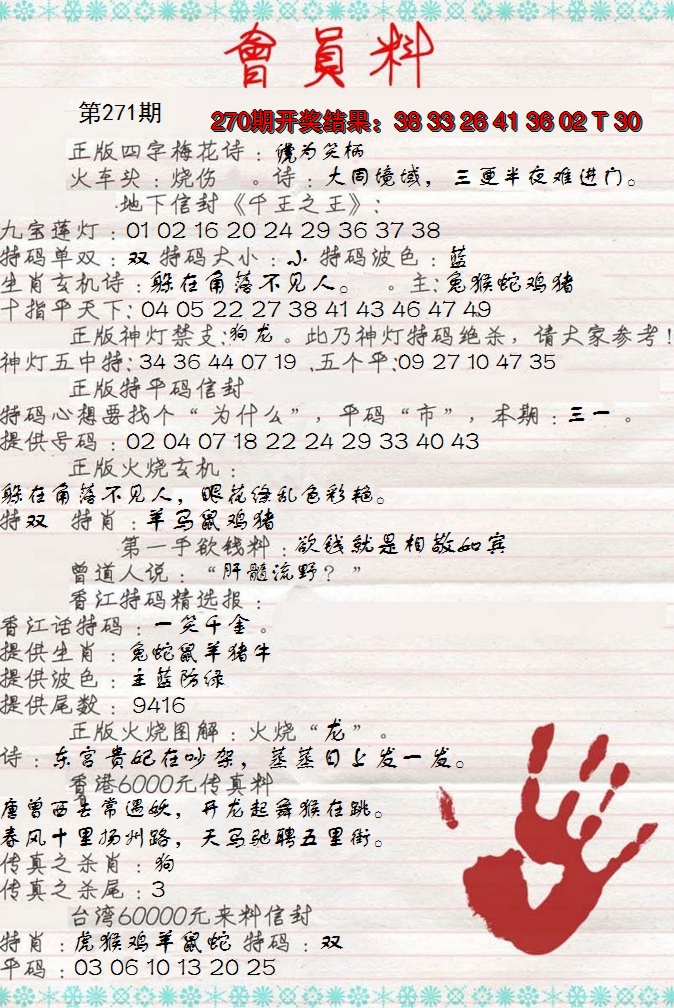 會員料
第271期
270期开奖结果：38 33 26 41 36 02 T 30
正版四字梅花诗：傥为笑柄
火车头：烧伤 。诗：大同境域，三更半夜难进门。
地下信封《千王之王》：
九宝莲灯：01 02 16 20 24 29 36 37 38
特码单双：双 特码大小：小 特码波色：蓝
生肖玄机诗：躲在角落不见人。 。主：兔猴蛇鸡猪
十指平天下：04 05 22 27 38 41 43 46 47 49
正版神灯禁支：狗龙。此乃神灯特码绝杀，请大家参考！
神灯五中特：34 36 44 07 19 .五个平：09 27 10 47 35
正版特平码信封
特码心想要找个“为什么”，平码“市”，本期：三一。
提供号码：02 04 07 18 22 24 29 33 40 43
正版火烧玄机：
躲在角落不见人，眼花缭乱色彩艳。
特双 特肖：羊马鼠鸡猪
第一手欲钱料：欲钱就是相敬如宾
曾道人说：“肝髓流野？”
香江特码精选报：
香江话特码：一笑千金。
提供生肖：兔蛇鼠羊猪牛
提供波色：主蓝防绿
提供尾数：9416
正版火烧图解：火烧“龙”。
诗：东宫贵妃在吵架，蒸蒸日上发一发。
香港6000元传真料
唐曾西去常遇妖，开龙起舞猴在跳。
春风十里扬州路，天马驰聘五里街。
传真之杀肖：狗
传真之杀尾：3
台湾60000元来料信封
特肖：虎猴鸡羊鼠蛇 特码：双
平码：03 06 10 13 20 25